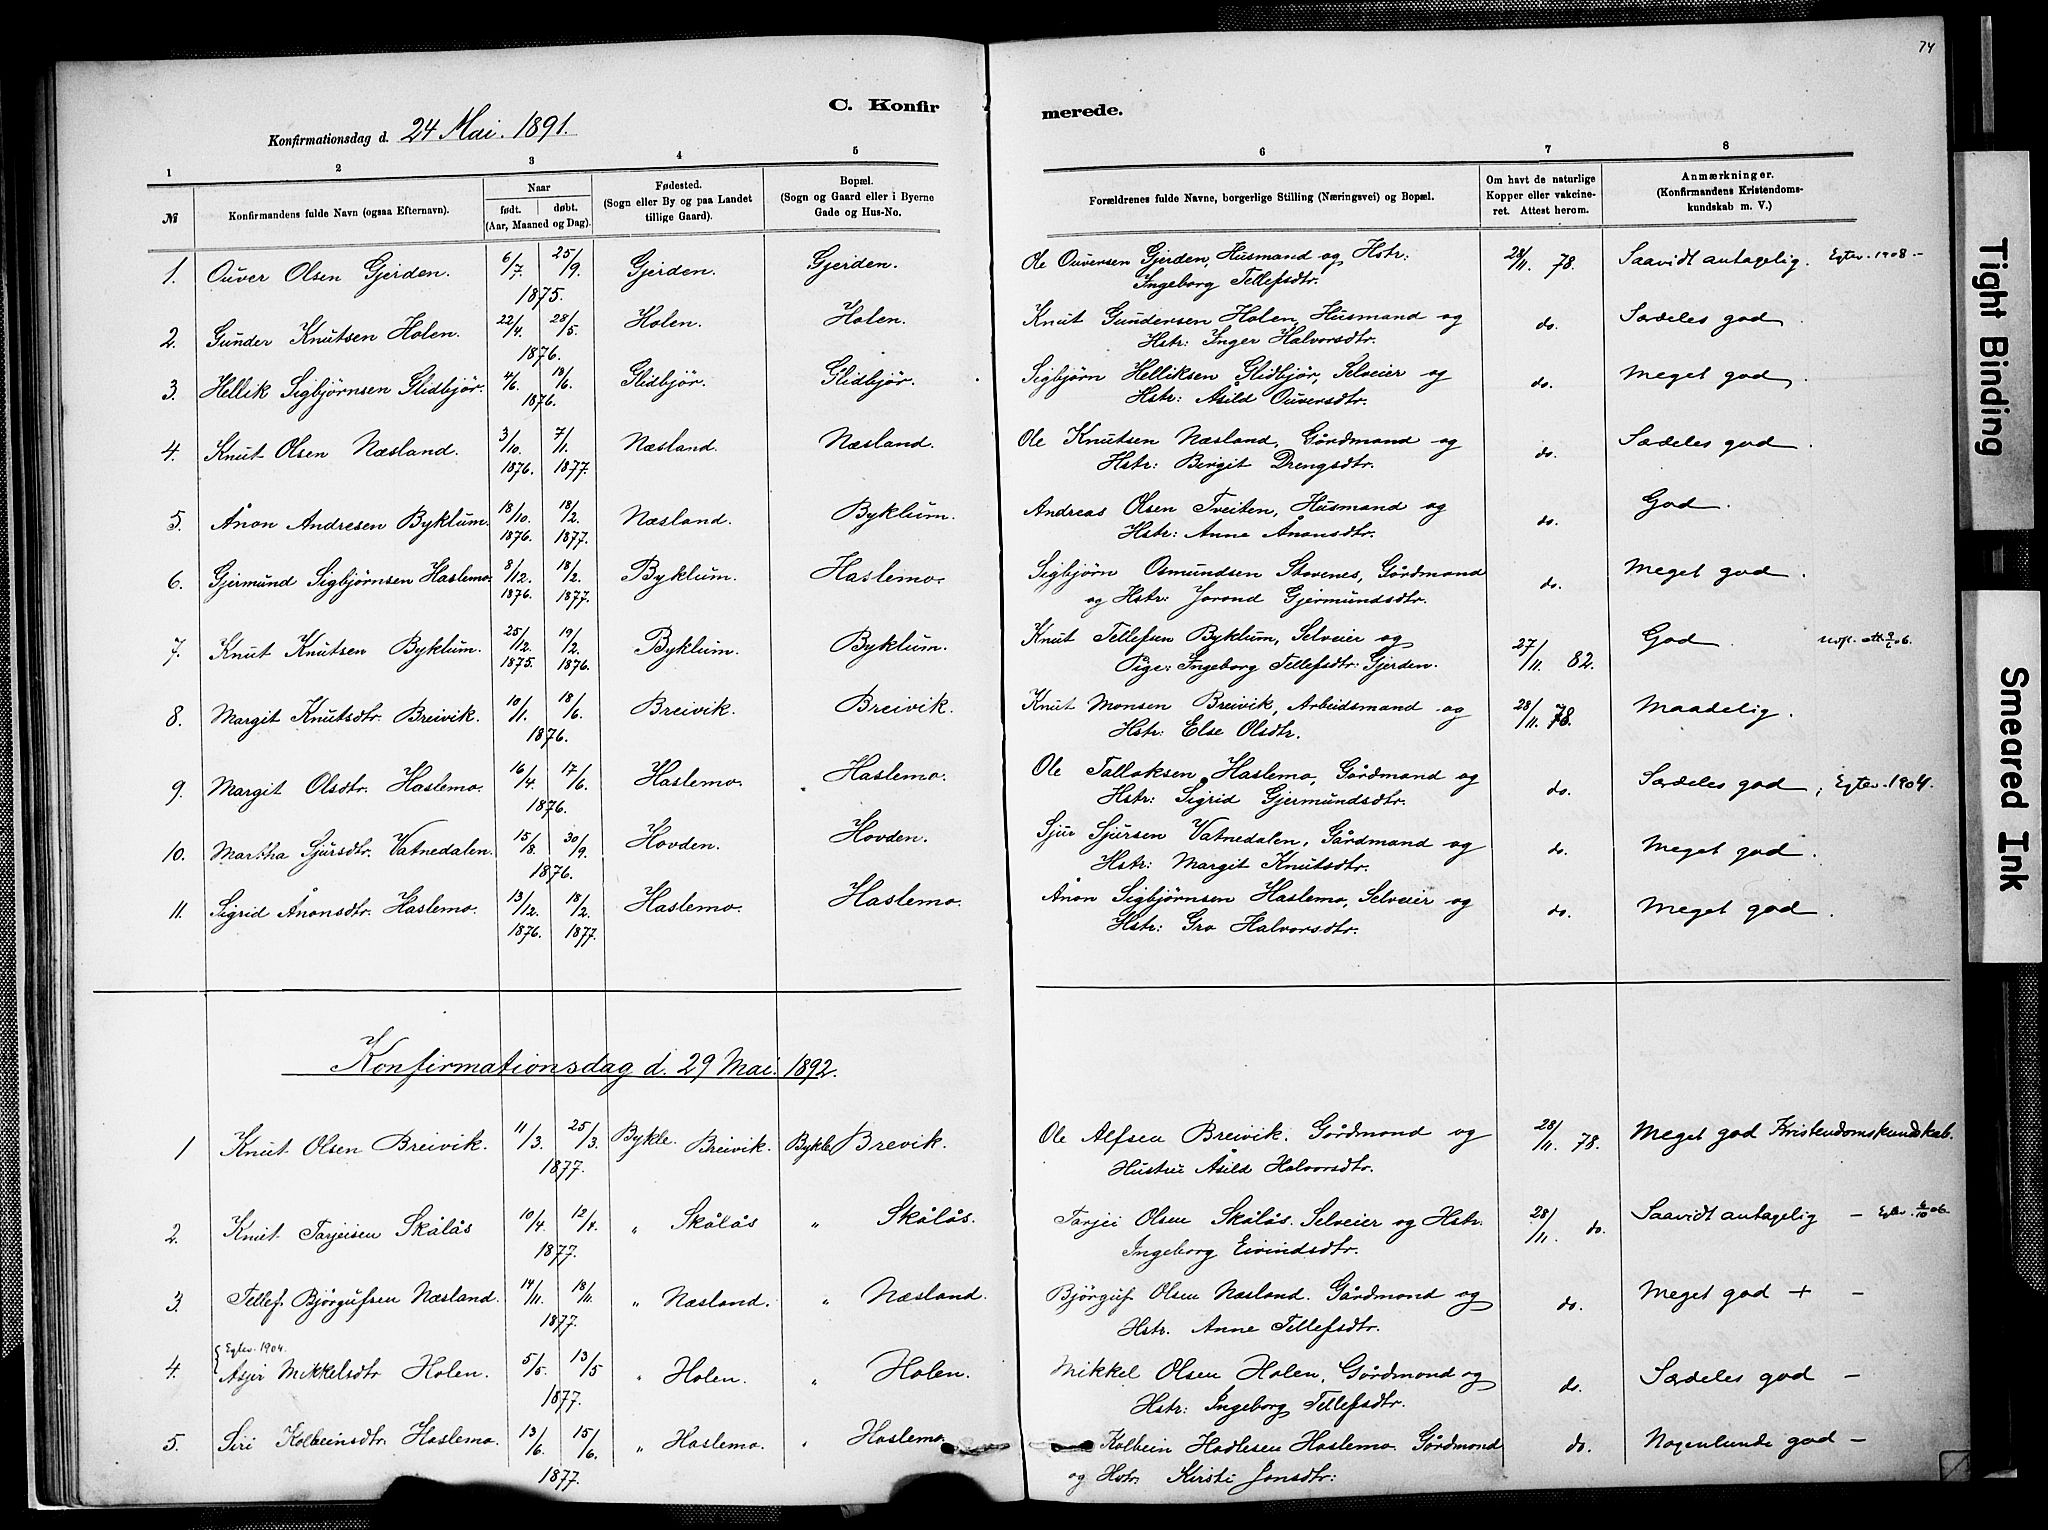 74
C. Konfirmerede.
Konfirmationsdag d. 24 Mai. 1891.
1 2 3 4 5 6 7 8
№ Konfirmandens fulde Navn (ogsaa Efternavn). Naar født. døbt. (Aar, Maaned og Dag). Fødested. (Sogn eller By og paa Landet tillige Gaard). Bopæl. (Sogn og Gaard eller i Byerne Gade og Hus-No. Forældrenes fulde Navne, borgerlige Stilling (Næringsvei) og Bopæl. Om havt de naturlige Kopper eller vakcineret. Attest herom. Anmærkninger. (Konfirmandens Kristendomskundskab m. V.)
1. Ouver Olsen Gjerden. 6/7. 25/9. 1875. Gjerden. Gjerden. Ole Ouversen Gjerden, Husmand og Hstr: 28/11. 78. Saavidt antagelig. Egtev. 1908 -
Ingeborg Tellefsdtr.
2. Gunder Knutsen Holen. 22/4. 28/5. 1876. Holen. Holen. Knut Gundersen Holen, Husmand og do. Særdeles god.
Hstr: Inger Halvorsdtr.
3. Hellik Sigbjørnsen Glidbjør. 4/6. 18/6. 1876. Glidbjør. Glidbjør. Sigbjørn Helliksen Glidbjør, Selveier og do. Meget god.
Hstr: Åsild Ouversdtr.
4. Knut Olsen Næsland. 3/10. 1876. 7/1. 1877. Næsland. Næsland. Ole Knutsen Næsland, Gårdmand og do. Særdeles god.
Hstr: Birgit Drengsdtr.
5. Ånon Andresen Byklum. 18/10. 1876. 18/2. 1877. Næsland. Byklum. Andreas Olsen Tveiten, Husmand og do. God.
Hstr: Anne Ånonsdtr.
6. Gjermund Sigbjørnsen Haslemo. 8/12. 1876. 18/2. 1877. Byklum. Haslemo. Sigbjørn Osmundsen Stavenes, Gårdmand do. Meget god.
og Hstr: Jorond Gjermundsdtr.
7. Knut Knutsen Byklum. 25/12. 1875. 19/2. 1876. Byklum. Byklum. Knut Tellefsen Byklum, Selveier og 27/11. 82. God.
Pige: Ingeborg Tellefsdtr: Gjerden.
8. Margit Knutsdtr. Breivik. 10/1. 18/6. 1876. Breivik. Breivik. Knut Monsen Breivik, Arbeidsmand og 28/11. 78. Maadelig.
Hstr: Else Olsdtr.
9. Margit Olsdtr. Haslemo. 16/4. 17/6. 1876. Haslemo. Haslemo. Ole Tallaksen Haslemo, Gårdmand og do. Særdeles god, Egtev. 1904.
Hstr: Sigrid Gjermundsdtr.
10. Martha Sjursdtr. Vatnedalen. 15/8. 30/9. 1876. Hovden. Hovden. Sjur Sjursen Vatnedalen, Gårdmand og do. Meget god.
Hstr: Margit Knutsdtr.
11. Sigrid Ånonsdtr. Haslemo. 13/12. 1876. 18/2. 1877. Haslemo. Haslemo. Ånon Sigbjørnsen Haslemo, Selveier og do. Meget god.
Hstr: Gro Halvorsdtr.
Konfirmationsdag d. 29 Mai. 1892.
1 Knut Olsen Breivik. 11/3. 25/3. 1877. Bykle. Breivik. Bykle Brevik. Ole Alfsen Breivik. Gårdmond og 28/11. 78. Meget god Kristendomskundskab.
Hustru Åsild Halvorsdtr.
2. Knut Tarjeisen Skålås 10/4. 12/4. 1877. " Skålås " Skålås. Tarjei Olsen Skålås. Selveier og Hstr. 28/11. do. Saavidt antagelig - Egtev. 6/10 06.
Ingeborg Eivindsdtr.
3. Tellef Bjørgufsen Næsland. 14/11. 18/11. 1877. " Næsland. " Næsland. Bjørguf Olsen Næsland. Gårdmond og do. Meget god + -
Hstr. Anne Tellefsdtr.
Egtev. 1904.
4. Asjer Mikkelsdtr Holen. 5/5. 13/5 1877. " Holen. " Holen. Mikkel Olsen Holen, Gårdmond og do. Særdeles god -
Hstr: Ingeborg Tellefsdtr.
5. Siri Kolbeinsdtr. Haslemo. 13/6. 15/6. 1877. " Haslemo. " Haslemo Kolbein Hadlesen Haslemo. Gårdmond do. Nogenlunde god -
og Hstr. Kirsti Jonsdtr:
Tight Binding
Smeared Ink